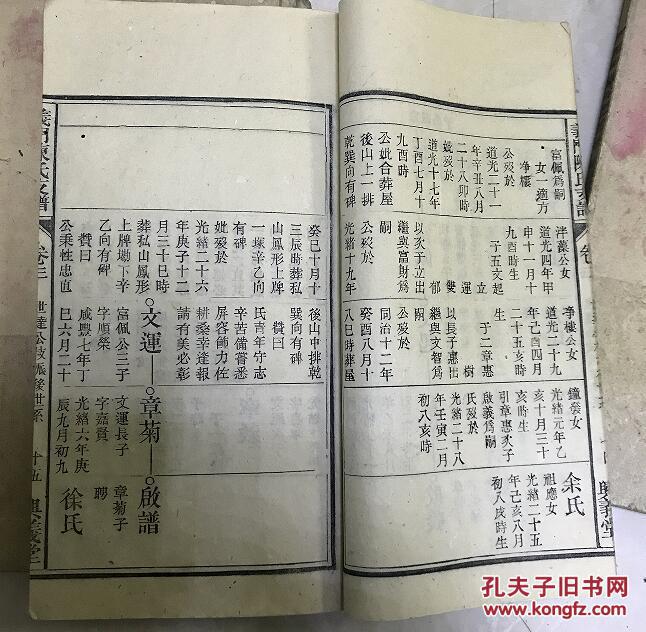 義門陳氏支譜
卷
富佩爲嗣
女一適方
净樓
公歿於
道光二十一
年辛丑八月
二十八卯時
妣歿於
道光十七年
丁酉七月十
九酉時
公妣合葬屋
後山上一排
乾巽向有碑
泮藻公女
道光四年甲
申十一月十
九酉時生
子五文起
立
運
雙
郁
繼與富財爲
以次于立出
嗣
公歿於
光緒十九年
亭樓公女
道光二十九
年己酉四月
二十五亥時
生
于二章惠
樹
以長子惠出
繼與文智爲
嗣
公歿於
同治十二年
癸酉八月十
八巳時葬屋
光緒元年乙
亥十月三十
亥時
引章惠次子
啟義爲嗣
氏歿於
光緒二十八
年壬寅二月
初八亥時
余氏
祖應女
光緒二十五
年己亥八月
初八戌時生
癸巳十月十
三辰時葬私
山鳳形上牌
一塚辛乙向
有碑
妣歿於
光緒二十六
年庚子十二
月三十巳時
葬私山鳳形
上牌塲下辛
乙向有碑
贊曰
公秉性忠直
後山中排乾
巽向有碑
贊曰
氏青年守志
辛苦備嘗悉
屏容飾力佐
耕桑幸逢報
請有美必彰
文運
富佩公三子
字順榮
咸豐七年丁
巳六月二十
章菊
文運長子
字嘉賢
光緒六年庚
辰九月初九
啟譜
章菊子
聘
徐氏
義門陳氏支譜
卷三
世達公
世系
十五
孔夫子旧书网
www.kongfz.com